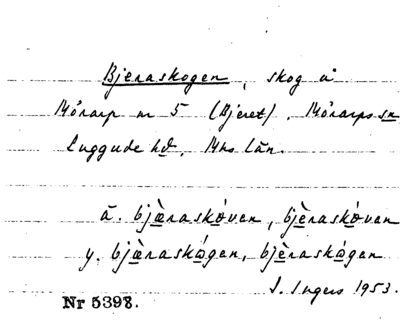 Bjeraskogen, skog å
Mörarp nr 5 (Bjeret), Mörarps sn
Luggude hd, Mhs län.
ä. bjæ̀raskóven, bjèraskóven
y. bjæ̀raskógen, bjèraskógen
S. Ingers 1953.
Nr 5398.